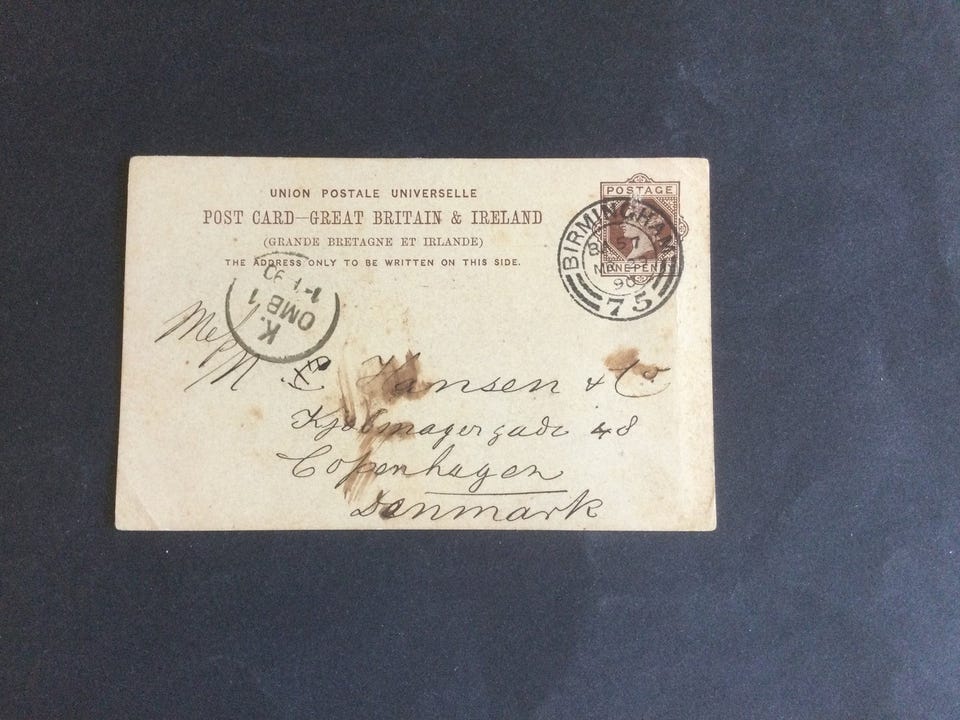 UNION POSTALE UNIVERSELLE
POST CARD—GREAT BRITAIN & IRELAND
(GRANDE BRETAGNE ET IRLANDE)
THE ADDRESS ONLY TO BE WRITTEN ON THIS SIDE.
POSTAGE
ONE PENNY
BIRMINGHAM
90
75
K.
OMB 1
Hansen & Co
Kjobmagergade 48
Copenhagen
Denmark